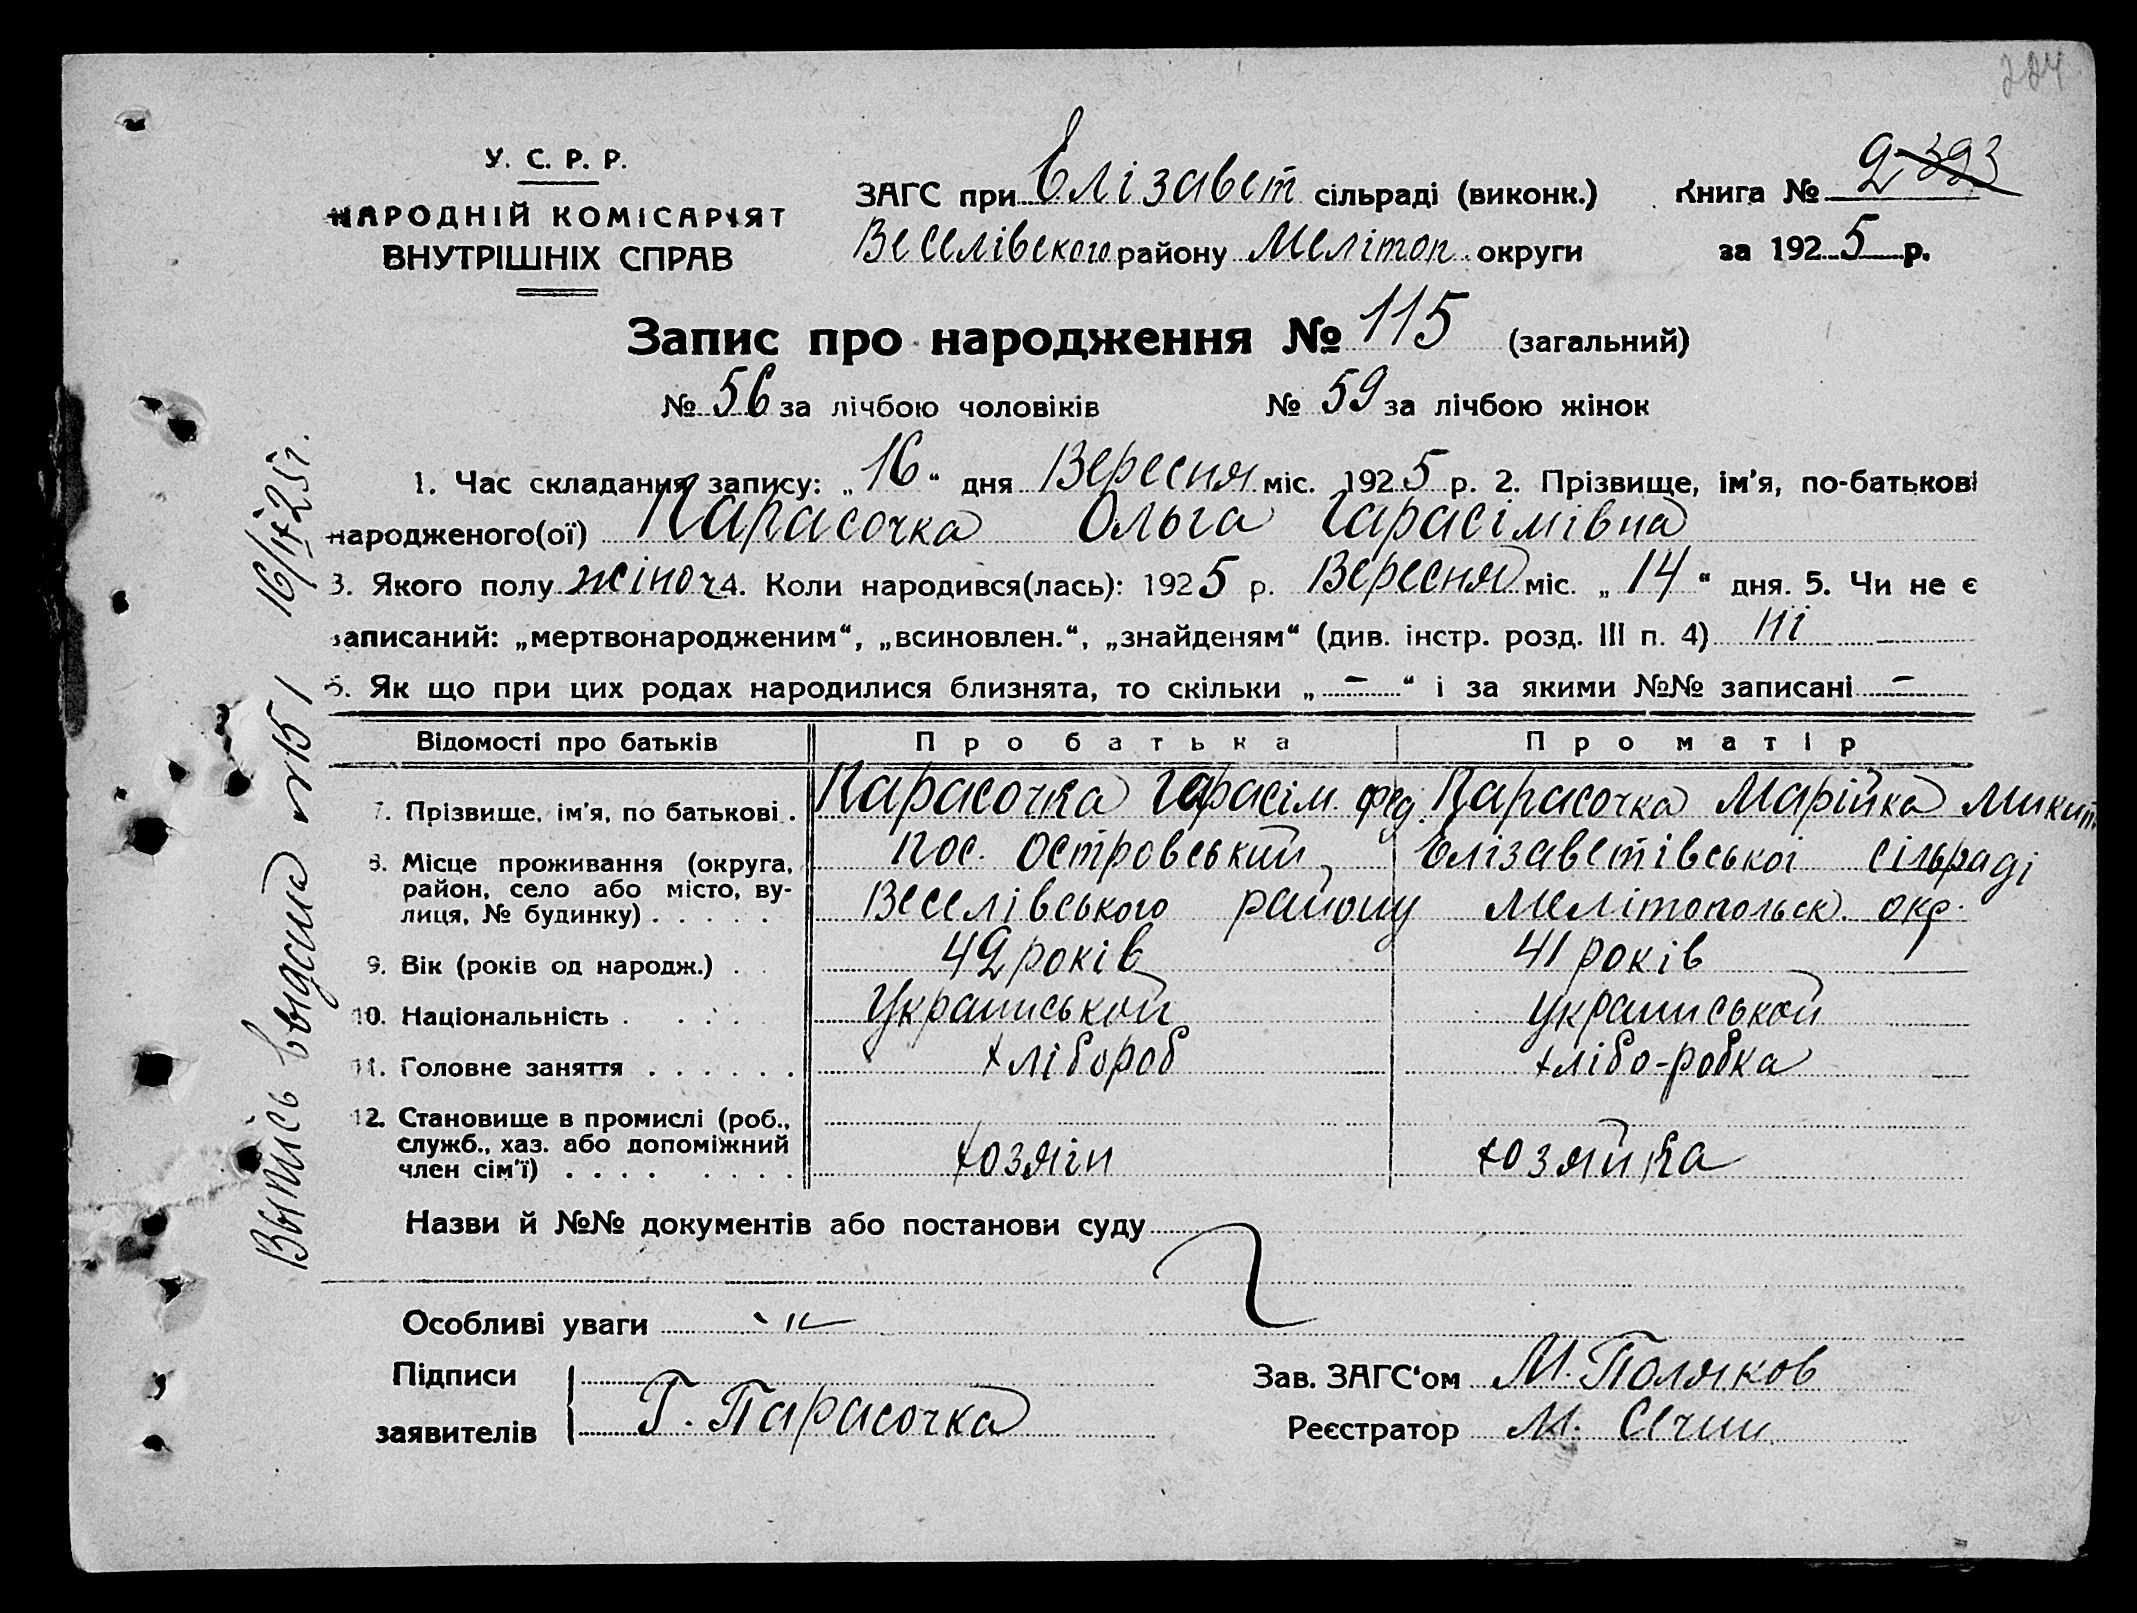 224
У. С. Р. Р.
НАРОДНІЙ КОМІСАРІЯТ
ВНУТРІШНІХ СПРАВ
ЗАГС при Елізавет сільраді (виконк.)
Веселівского району Меліноп. округи
Книга № 2 393
за 1925 р.
Запис про народження № 115 (загальний)
№ 56 за лічбою чоловіків № 59 за лічбою жінок
1. Час складання запису: „16“ дня Вересня міс. 1925 р. 2. Прізвище, ім'я, по-батькові
народженого(ої) Парасочка Ольга Гарасімівна
3. Якого полу жіноч 4. Коли народився(лась): 1925 р. Вересня міс. „14“ дня. 5. Чи не є
записаний: „мертвонародженим“, „всиновлен.“, „знайденям“ (див. інстр. розд. III п. 4) ні
6. Як що при цих родах народилися близнята, то скільки „ – “ і за якими №№ записані –
Відомості про батьків Про батька Про матір
7. Прізвище, ім'я, по батькові . Парасочка Гарасім. Фед. Парасочка Марійка Микит.
8. Місце проживання (округа, пос. Островський, Елізаветівської сільраді
район, село або місто, ву-
лиця, № будинку) . . . . . Веселівського району Мелітопольськ. окр.
9. Вік (років од народж.) . . 42 років 41 років
10. Національність . . . . Украінськой Украінськой
11. Головне заняття . . . . . . хлібороб хлібо-робка
12. Становище в промислі (роб.,
служб., хаз. або допоміжний
член сім'ї) . . . . . . . . хозяін хозяйка
Назви й №№ документів або постанови суду
Особливі уваги
Підписи
заявителів Г. Парасочка
Зав. ЗАГС'ом М. Поляков
Реєстратор М. Сечин
Выпись выдана № 151 16/IX 25 г.